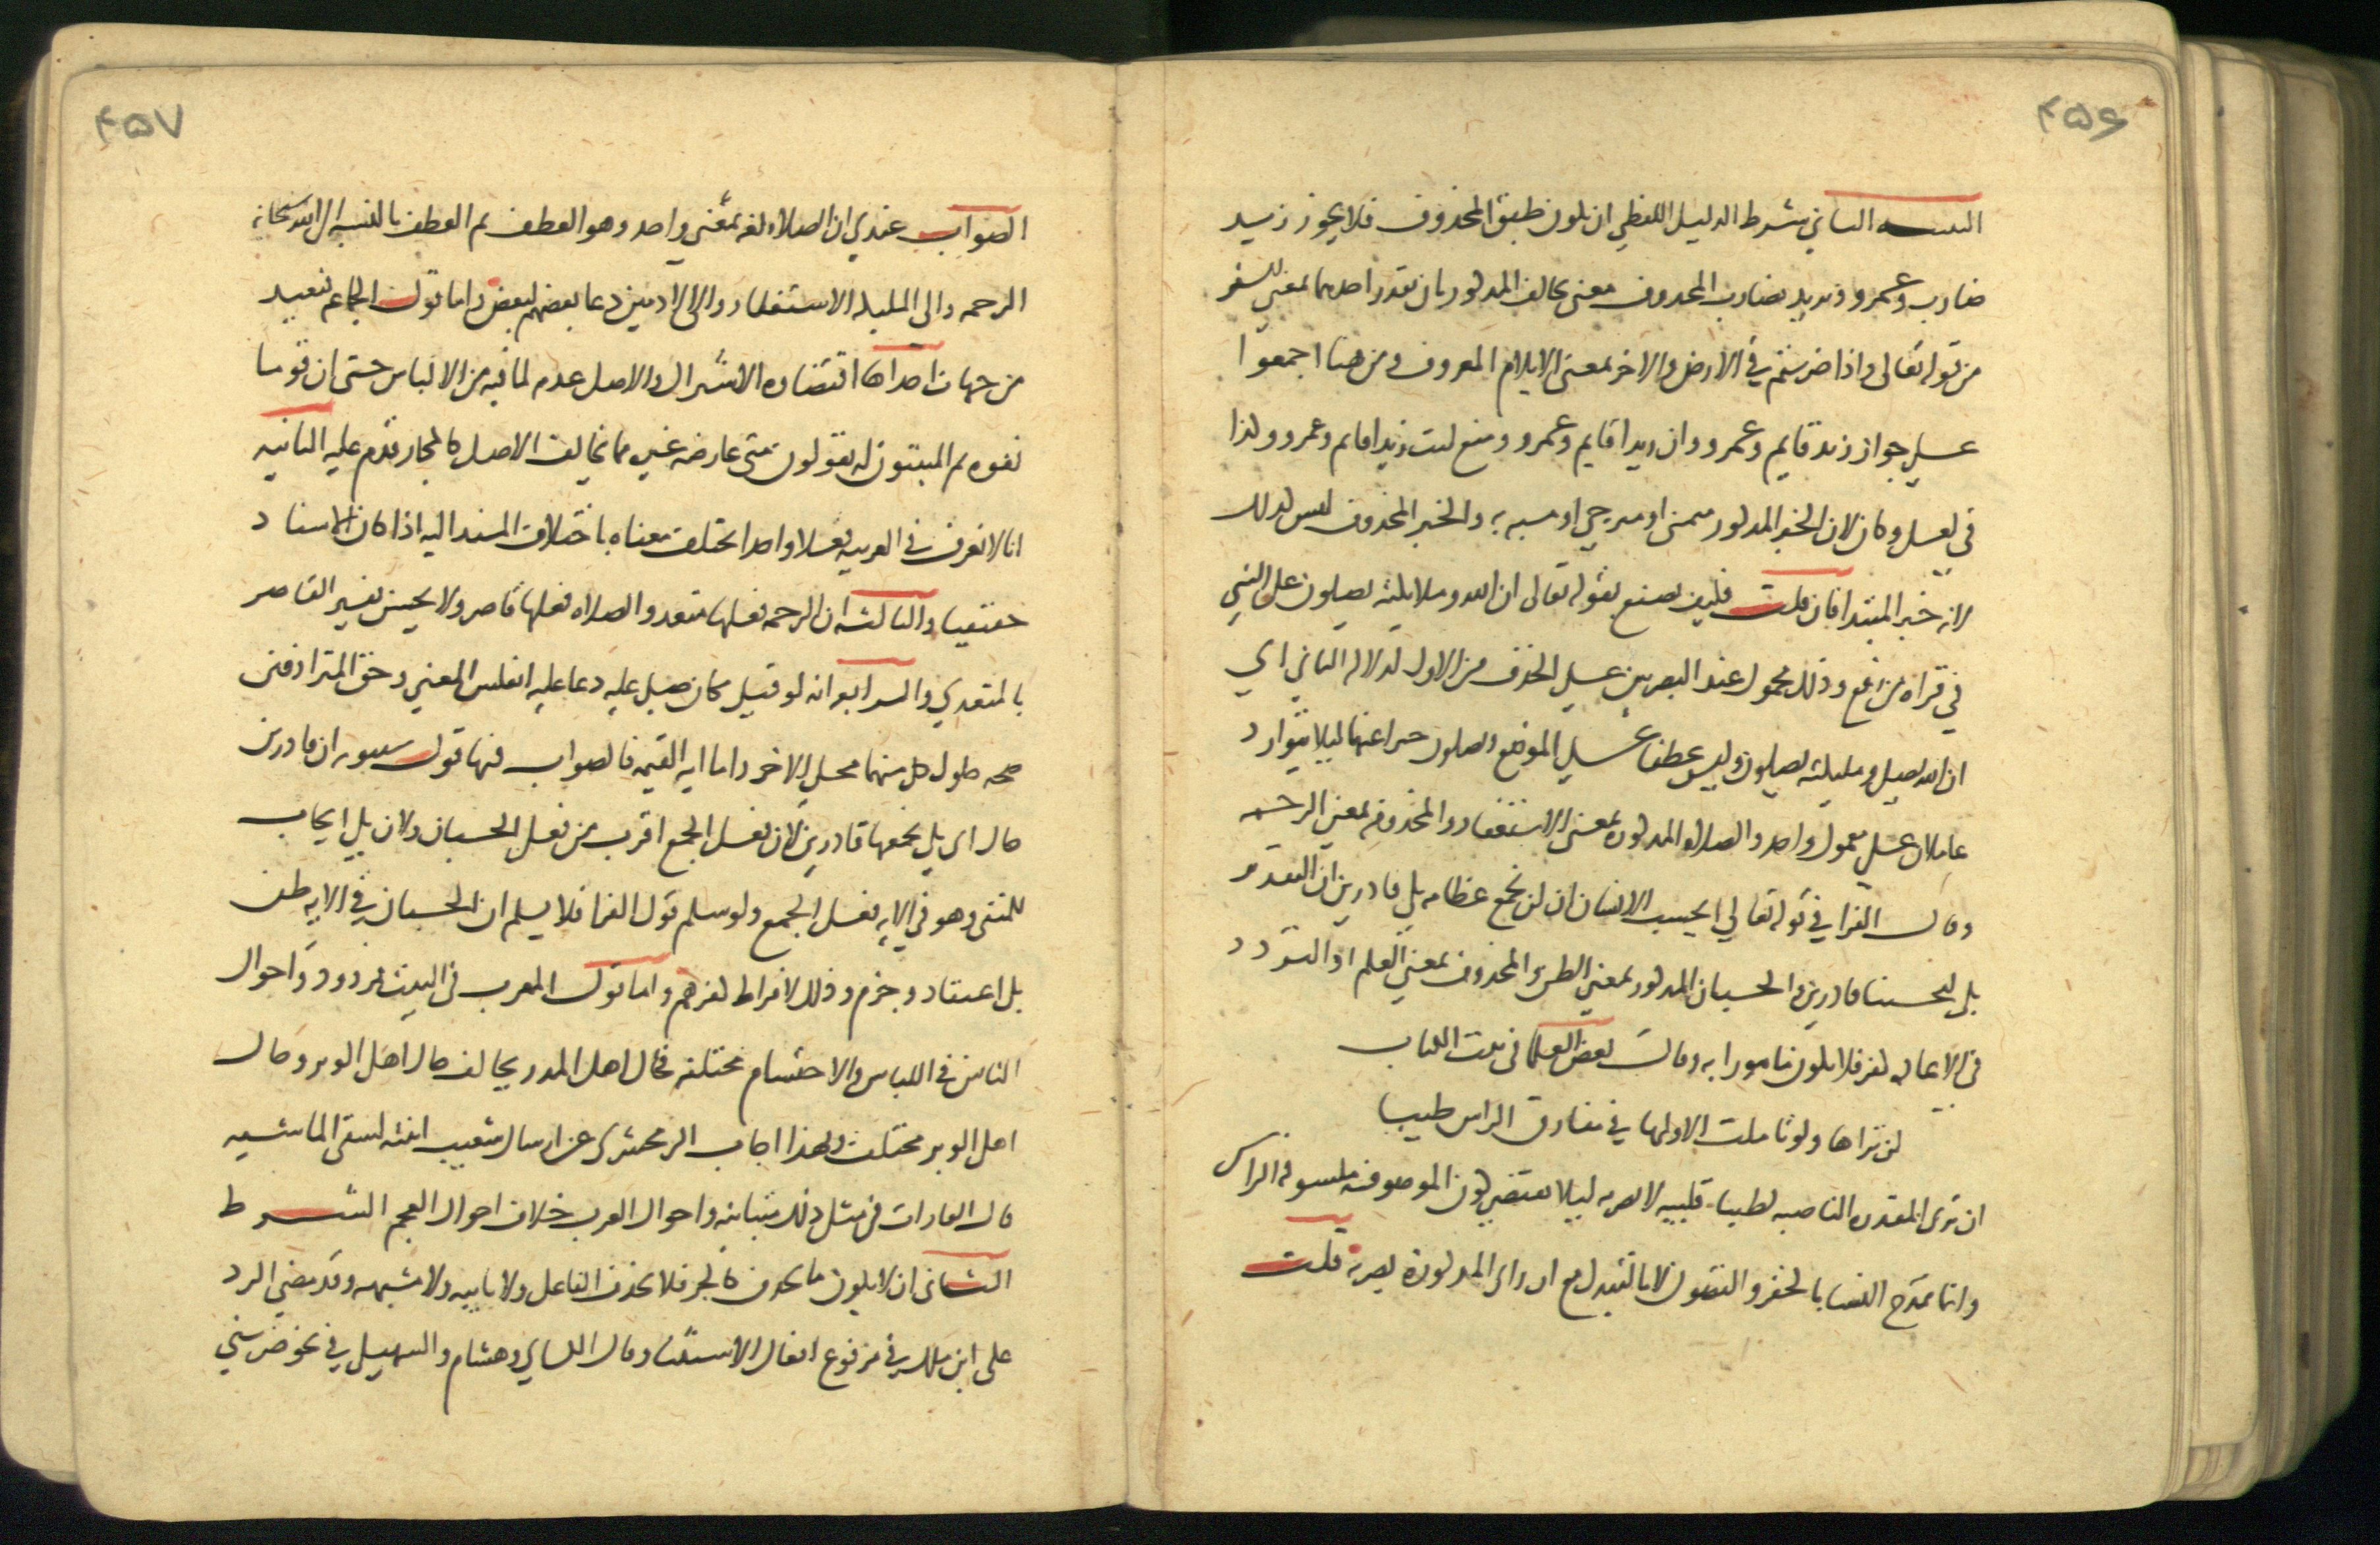 ۴۵۶
التنبيه الثاني شرط الدليل اللفظي ان يكون طبق المحذوف فلا يجوز زيد
ضارب وعمرو وتريد بضارب المحذوف معنى يخالف المذكور بان تقدر احدهما بمعنى السفر
من قوله تعالى واذا ضربتم في الارض والاخر بمعنى الايلام المعروف ومن هنا اجمعوا
على جواز زيد قايم وعمرو وان زيدا قايم وعمرو ومنع ليت زيدا قايم وعمرو وكذا
في لعل وكان لان الخبر المذكور متمنى او مترجى او مشبه به والخبر المحذوف ليس كذلك
لانه خبر المبتدا فان قلت فكيف تصنع بقوله تعالى ان الله وملايكته يصلون على النبي
في قراة من رفع وذلك محمول عند البصريين على الحذف من الاول لدلالة الثاني اي
ان الله يصلي وملايكته يصلون وليس عطفا على الموضع ويصلون خبرا عنهما ليلا يتوارد
عاملان على معمول واحد والصلاة المذكورة بمعنى الاستغفار والمحذوفه بمعنى الرحمه
وقال الفرا في قوله تعالى ايحسب الانسان ان لن نجمع عظامه بلى قادرين ان التقدير
بلى ليحسبنا قادرين والحسبان المذكور بمعنى الظن والمحذوف بمعنى العلم اذ التردد
في الاعادة كفر فلا يكون مامورا به وقال بعض العلما في بيت الكتاب
لن تراها ولو تاملت الا ولها في مفارق الراس طيبا
ان ترى المقدره الناصبه لطيبا قلبيه لا بصريه ليلا يقتضي كون الموصوفه مكشوفة الراس
وانما تمدح النسا بالخفر والتصون لا بالتبدل مع ان راى المذكورة بصرية قلت
۴۵۷
الصواب عندي ان الصلاه لغه بمعنى واحد وهو العطف ثم العطف بالنسبه الى الله سبحانه
الرحمه والى المليكه الاستغفار والى الادميين دعا بعضهم لبعض واما قول الجماعه فبعيد
من جهات احداها اقتضاوه الاشتراك والاصل عدمه لما فيه من الالباس حتى ان قوما
نفوه ثم المثبتون له يقولون متى عارضه غيره مما يخالف الاصل كالمجاز قدم عليه الثانيه
انا لا نعرف في العربيه فعلا واحدا يختلف معناه باختلاف المسند اليه اذا كان الاسناد
حقيقيا والثالثه ان الرحمه فعلها متعد والصلاه فعلها قاصر ولا يحسن تفسير القاصر
بالمتعدي والرابعه انه لو قيل مكان صلى عليه دعا عليه انعكس المعنى وحق المترادفين
صحه حلول كل منهما محل الاخر واما ايه القيمه فالصواب فيها قول سيبويه ان قادرين
حال اي بلى نجمعها قادرين لان فعل الجمع اقرب من فعل الحسبان ولان بلى ايجاب
للمنفي وهو في الايه فعل الجمع ولو سلم قول الفرا فلا يسلم ان الحسبان في الايه ظن
بل اعتقاد وجزم وذلك لافراط كفرهم واما قول المعرب في البيت فمردود واحوال
الناس في اللباس والاحتشام مختلفه فحال اهل المدر يخالف حال اهل الوبر وحال
اهل الوبر مختلف ولهذا اجاب الزمخشري عن ارسال شعيب ابنته لسقى الماشيه
قال العادات في مثل ذلك متباينه واحوال العرب خلاف احوال العجم الشرط
الثاني ان لا يكون ما يحذف كالجز فلا يحذف الفاعل ولا نايبه ولا مشبهه وقد مضى الرد
على ابن ملك في مرفوع افعال الاستثنا وقال الكساي وهشام والسهيلي في نحو ضربني